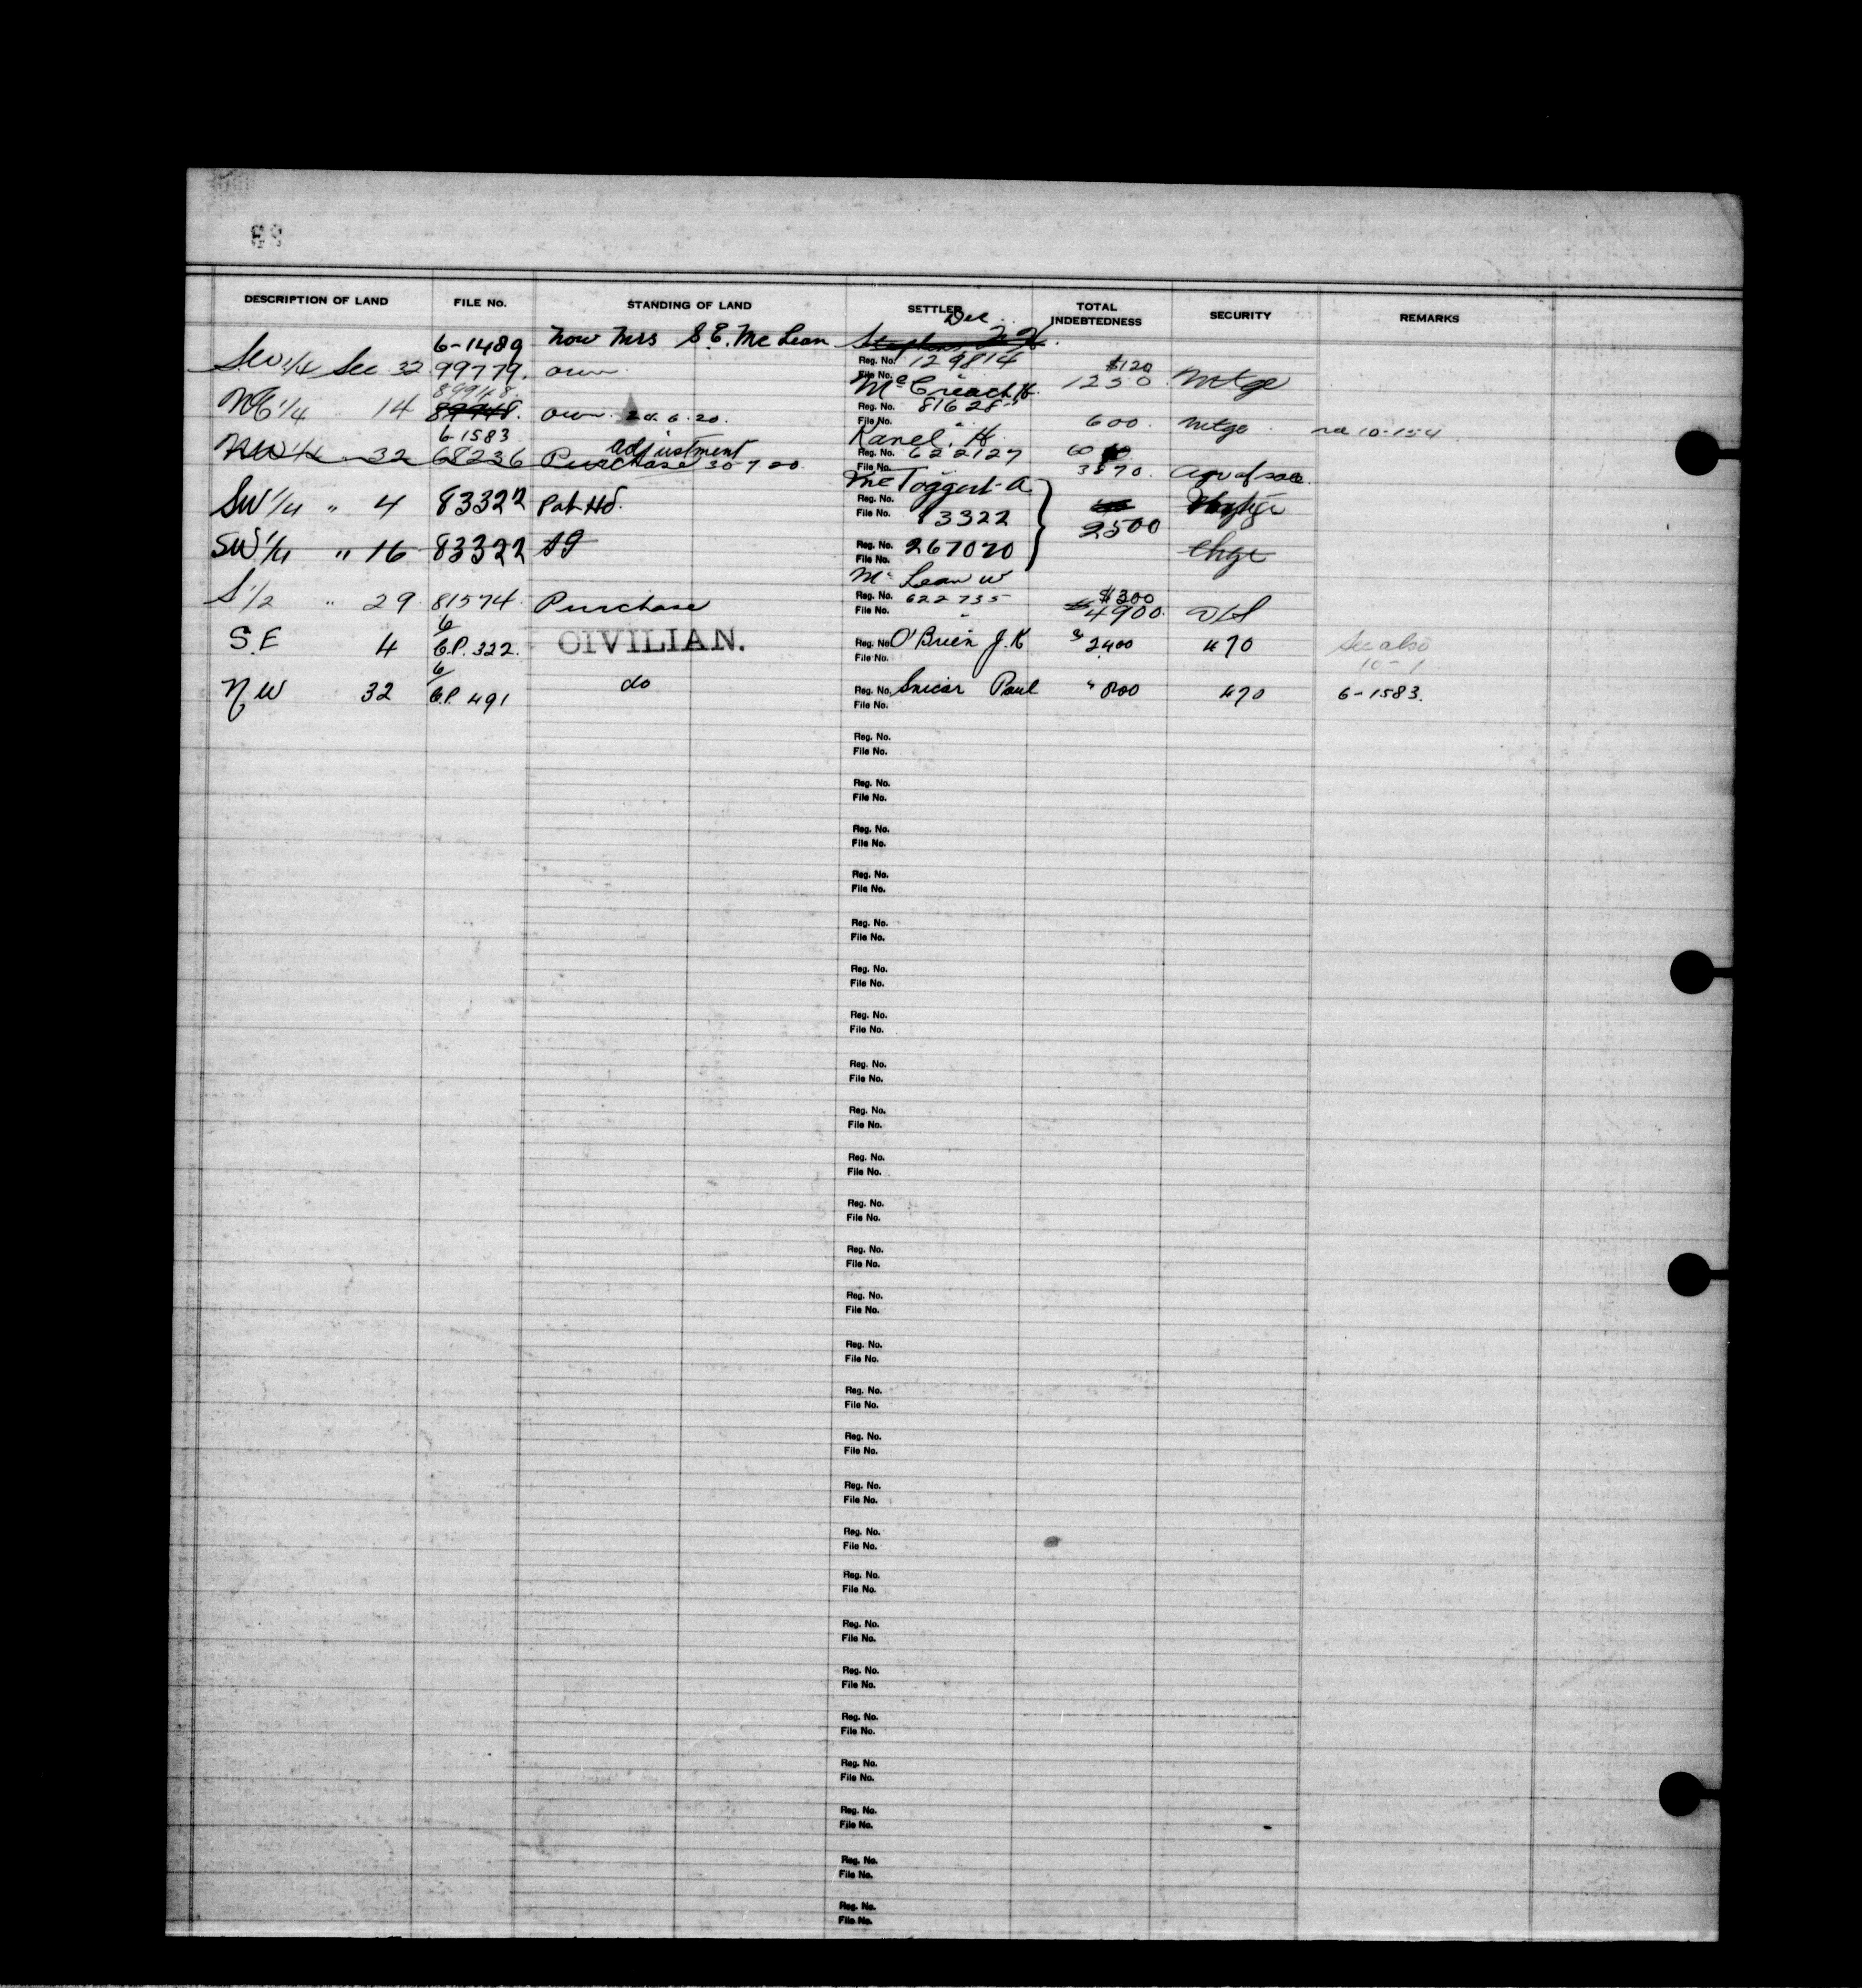 DESCRIPTION OF LAND FILE No. STANDING OF LAND SETTLER TOTAL INDEBTEDNESS SECURITY REMARKS
Dec.
6-1489 Now Mrs S.E. McLean
SW 1/4 Sec 32 99779. own Reg. No. 129814 $120
File No. 1250 Mtge
89948. McCreach H.
NE 1/4 " 14 89948. own 24.6.20. Reg. No. 81628
File No. 600. Mtge. 10-154
6-1583 adjustment Kanel, H.
NW 1/4 32 68236 Purchase 30-7-20 Reg. No. 622127
File No. 3870. agr of sale.
McToggart-A
SW 1/4 " 4 83322 Pat Hd. Reg. No.
File No. 83322 2500
SW 1/4 " 16 83322 SG Reg. No. 267070 Chge
File No.
Mc Lean W
S 1/2 " 29 81574 Purchase Reg. No. 622735 $300
File No. $4900. 
6
S.E 4 C.P. 322. CIVILIAN. Reg. No. O'Brien J.K $2400 470 See also
File No. 10-1
6
NW 32 C.P. 491 do Reg. No. Snicar Paul " 800 470 6-1583.
File No.
Reg. No.
File No.
Reg. No.
File No.
Reg. No.
File No.
Reg. No.
File No.
Reg. No.
File No.
Reg. No.
File No.
Reg. No.
File No.
Reg. No.
File No.
Reg. No.
File No.
Reg. No.
File No.
Reg. No.
File No.
Reg. No.
File No.
Reg. No.
File No.
Reg. No.
File No.
Reg. No.
File No.
Reg. No.
File No.
Reg. No.
File No.
Reg. No.
File No.
Reg. No.
File No.
Reg. No.
File No.
Reg. No.
File No.
Reg. No.
File No.
Reg. No.
File No.
Reg. No.
File No.
Reg. No.
File No.
Reg. No.
File No.